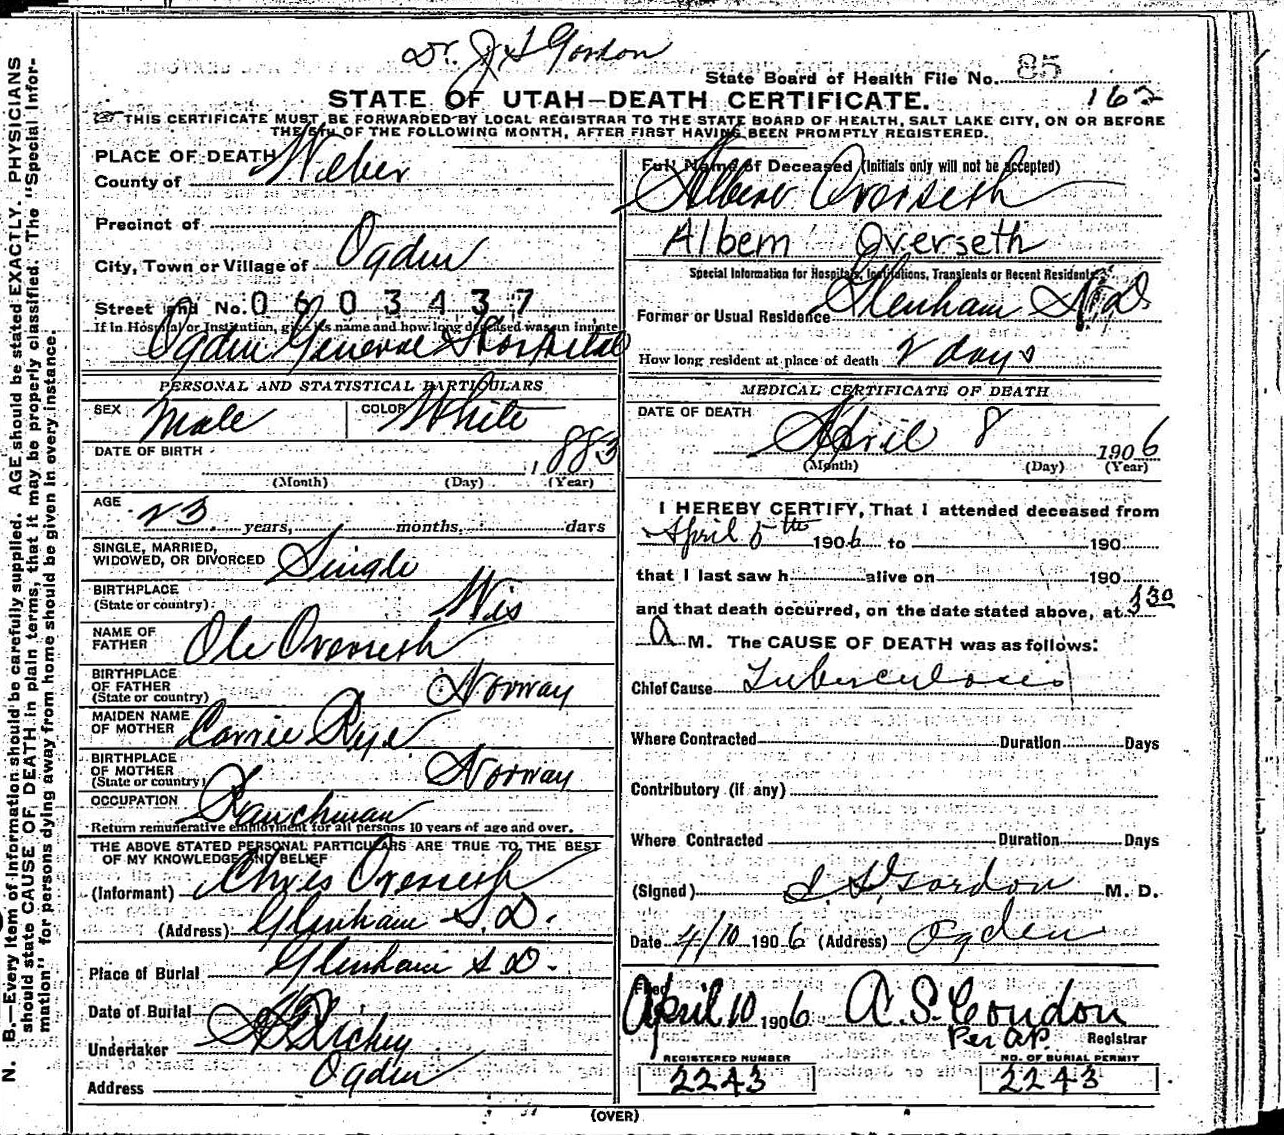 Dr. J S Gordon
State Board of Health File No. 85
162
STATE OF UTAH—DEATH CERTIFICATE.
THIS CERTIFICATE MUST BE FORWARDED BY LOCAL REGISTRAR TO THE STATE BOARD OF HEALTH, SALT LAKE CITY, ON OR BEFORE
THE 5TH OF THE FOLLOWING MONTH, AFTER FIRST HAVING BEEN PROMPTLY REGISTERED.
PLACE OF DEATH
County of Weber
Precinct of
City, Town or Village of Ogden
Street and No. 0603437
If in Hospital or Institution, give its name and how long deceased was an inmate
Ogden General Hospital
PERSONAL AND STATISTICAL PARTICULARS
SEX Male COLOR White
DATE OF BIRTH 1883
(Month) (Day) (Year)
AGE 23 years, months. days
SINGLE, MARRIED, WIDOWED, OR DIVORCED Single
BIRTHPLACE (State or country) Wis
NAME OF FATHER Ole Overseth
BIRTHPLACE OF FATHER (State or country) Norway
MAIDEN NAME OF MOTHER Carrie Rye
BIRTHPLACE OF MOTHER (State or country) Norway
OCCUPATION Ranchman
Return remunerative employment for all persons 10 years of age and over.
THE ABOVE STATED PERSONAL PARTICULARS ARE TRUE TO THE BEST
OF MY KNOWLEDGE AND BELIEF
(Informant) Chris Overseth
(Address) Glenham S.D.
Place of Burial Glenham S.D.
Date of Burial
Undertaker Richey
Address Ogden
Full Name of Deceased (Initials only will not be accepted)
Albem Overseth
Albem Overseth
Special Information for Hospitals, Institutions, Transients or Recent Residents
Former or Usual Residence Glenham D
How long resident at place of death 2 days
MEDICAL CERTIFICATE OF DEATH
DATE OF DEATH April 8 1906
(Month) (Day) (Year)
I HEREBY CERTIFY, That I attended deceased from
April 5th 1906 to 190
that I last saw h alive on 190
and that death occurred, on the date stated above, at 3 30
A M. The CAUSE OF DEATH was as follows:
Chief Cause Tuberculosis
Where Contracted Duration Days
Contributory (if any)
Where Contracted Duration Days
(Signed) J. S. Gordon M. D.
Date 4/10 1906 (Address) Ogden
Filed
April 10 1906 A. S. Condon
Per A.P. Registrar
REGISTERED NUMBER 2243
NO. OF BURIAL PERMIT 2243
(OVER)
N. B.—Every item of information should be carefully supplied. AGE should be stated EXACTLY. PHYSICIANS
should state CAUSE OF DEATH in plain terms, that it may be properly classified. The "Special Infor-
mation" for persons dying away from home should be given in every instance.